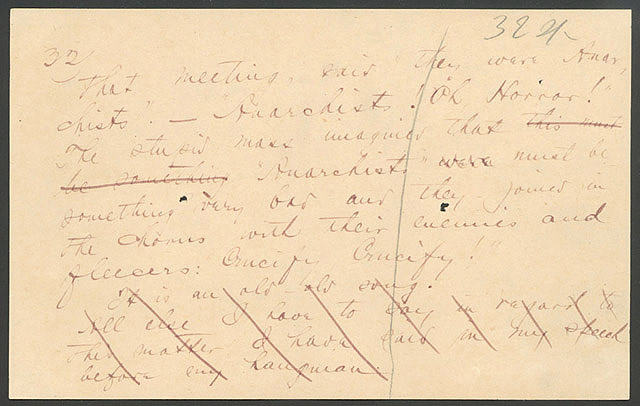 324
32
that meeting, said "they were Anar,
chists". — "Anarchists! Oh, Horror!"
The stupid mass imagines that this must
be something "Anarchists" were must be
something very bad and they joined in
the chorus with their enemies and
fleecers: "Crucify, Crucify!"
It is an old - old song.
All else I have to say in regard to
this matter I have said in my speech
before my hangman.